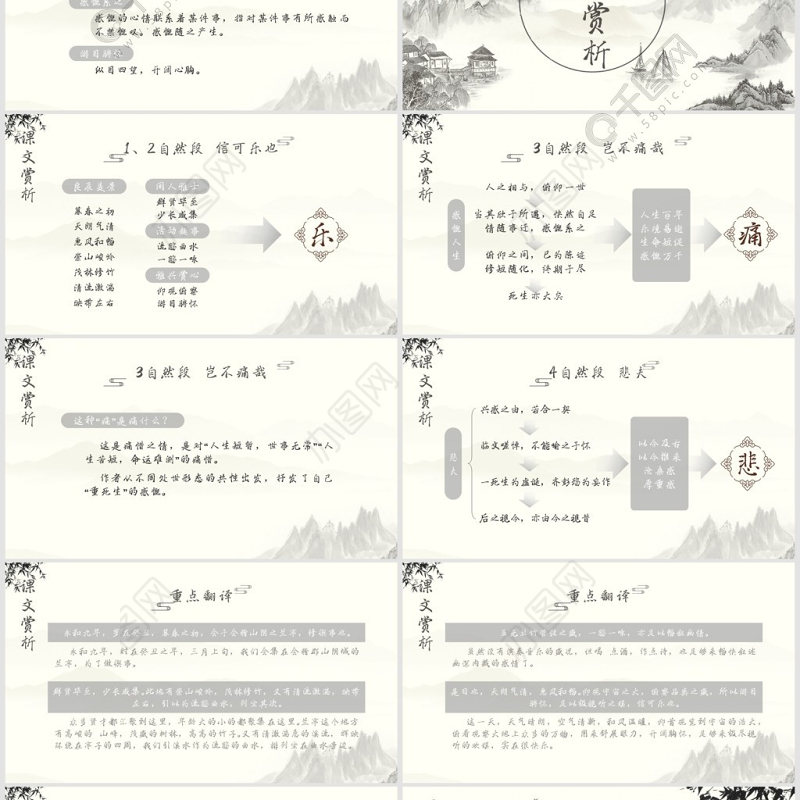 感慨系之
感慨的心情联系着某件事，指对某件事有所感触而
不禁慨叹。感慨随之产生。
游目骋怀
纵目四望，开阔心胸。
赏析
课文赏析
1、2自然段 信可乐也
良辰美景
暮春之初
天朗气清
惠风和畅
崇山峻岭
茂林修竹
清流激湍
映带左右
闲人雅士
群贤毕至
少长咸集
活动趣事
流觞曲水
一觞一咏
雅兴赏心
仰观俯察
游目骋怀
乐
3自然段 岂不痛哉
感慨人生
人之相与，俯仰一世
当其欣于所遇，快然自足
情随事迁，感慨系之
俯仰之间，已为陈迹
修短随化，终期于尽
死生亦大矣
人生百年
乐生易逝
生命短促
感慨万千
痛
课文赏析
3自然段 岂不痛哉
这种“痛”是痛什么？
这是痛惜之情，是对“人生短暂，世事无常”“人
生苦短，命运难测”的痛惜。
作者从不同处世形态的共性出发，抒发了自己
“重死生”的感慨。
课文赏析
4自然段 悲夫
悲夫
兴感之由，若合一契
临文嗟悼，不能喻之于怀
一死生为虚诞，齐彭殇为妄作
后之视今，亦由今之视昔
以今及古
以今推来
沧桑感
厚重感
悲
课文赏析
重点翻译
永和九年，岁在癸丑，暮春之初，会于会稽山阴之兰亭，修禊事也。
永和九年，时在癸丑之年，三月上旬，我们会集在会稽郡山阴城的
兰亭，为了做禊事。
群贤毕至，少长咸集。此地有崇山峻岭，茂林修竹，又有清流激湍，映带
左右，引以为流觞曲水，列坐其次。
众多贤才都汇聚到这里，年龄大的小的都聚集在这里。兰亭这个地方
有高峻的 山峰，茂盛的树林，高高的竹子。又有清澈湍急的溪流，辉映
环绕在亭子的四周，我们引溪水作为流觞的曲水，排列坐在曲水旁边。
重点翻译
虽无丝竹管弦之盛，一觞一咏，亦足以畅叙幽情。
虽然没有演奏音乐的盛况，但喝 点酒，作点诗，也足够来畅快叙述
幽深内藏的感情了。
是日也，天朗气清，惠风和畅。仰观宇宙之大，俯察品类之盛，所以游目
骋怀，足以极视听之娱，信可乐也。
这一天，天气晴朗，空气清新，和风温暖，仰首观览到宇宙的浩大，
俯看观察大地上众多的万物，用来舒展眼力，开阔胸怀，足够来极尽视
听的欢娱，实在很快乐。